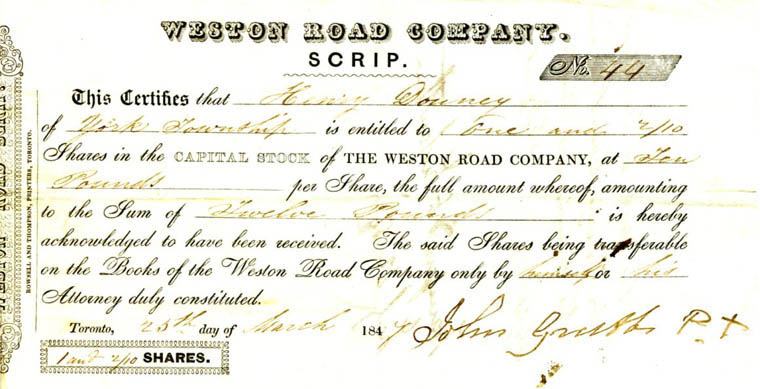 WESTON ROAD COMPANY.
SCRIP.
No. 44
This Certifies that Henry Downey
of York Township is entitled to One and 2/10
Shares in the CAPITAL STOCK of THE WESTON ROAD COMPANY, at Ten
Pounds per Share, the full amount whereof, amounting
to the Sum of Twelve Pounds is hereby
acknowledged to have been received. The said Shares being transferable
on the Books of the Weston Road Company only by himself or his
Attorney duly constituted.
Toronto, 25th day of March 1847 John Grubb
1 and 2/10 SHARES.
ROWSELL AND THOMPSON, PRINTERS, TORONTO.
WESTON ROAD SCRIP.